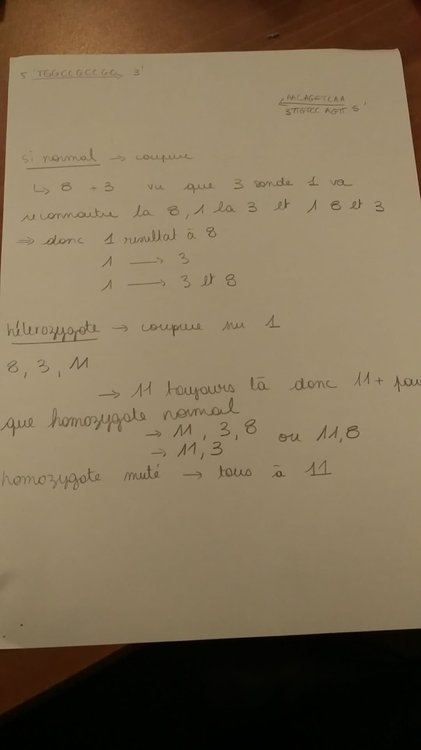 5' TGGCCGCCGG 3'
AACAGGTCAA
3' TTGTCC AGTT 5'
si normal → coupure
↳ 8 + 3 vu que 3 sonde 1 va
reconnaitre la 8, 1 la 3 et 1 8 et 3
⇒ donc 1 resultat à 8
1 → 3
1 → 3 et 8
hétérozygote → coupure sur 1
8, 3, 11
→ 11 toujours là donc 11+ pour
que homozygote normal
→ 11, 3, 8 ou 11,8
→ 11,3
homozygote muté → tous à 11